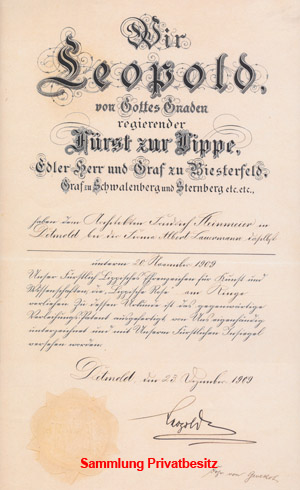 Wir
Leopold,
von Gottes Gnaden
regierender
Fürst zur Lippe,
Edler Herr und Graf zu Biesterfeld,
Graf zu Schwalenberg und Sternberg etc. etc.,
haben dem Architekten Heinrich
Detmold bei der Firma Albert daselbst
unterm 20 November 1909
Unser Fürstlich Lippisches Ehrenzeichen für Kunst und
Wissenschaften, die Lippische Rose am Ringe
verliehen. Zu dessen Urkunde ist das gegenwärtige
Verleihungs-Patent ausgefertigt von Uns eigenhändig
unterzeichnet und mit Unserm Fürstlichen Insiegel
versehen worden.
Detmold, den 23 Dezember 1909
Leopold
Sammlung Privatbesitz